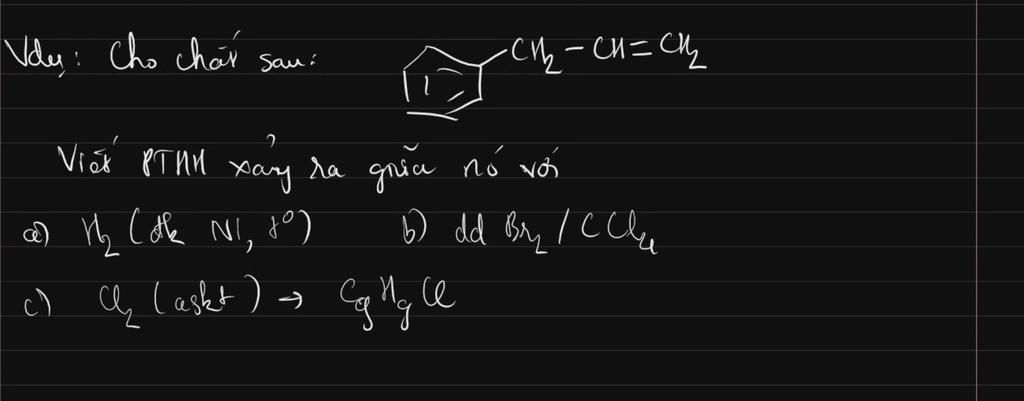 Vdụ: Cho chất sau: CH₂-CH=CH₂
Viết PTHH xảy ra giữa nó với
a) H₂ (đk Ni, t°) b) dd Br₂/CCl₄
c) Cl₂ (askt) → C₉H₉Cl